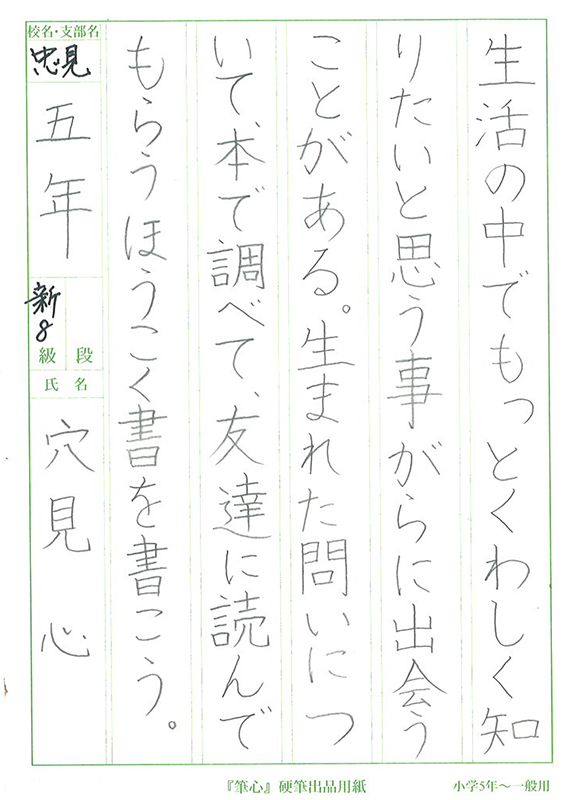 生活の中でもっとくわしく知
りたいと思う事がらに出会う
ことがある。生まれた問いにつ
いて、本で調べて、友達に読んで
もらうほうこく書を書こう。
校名・支部名
忠見
五年
新8
級 段
氏 名
穴見 心
『筆心』硬筆出品用紙
小学5年〜一般用